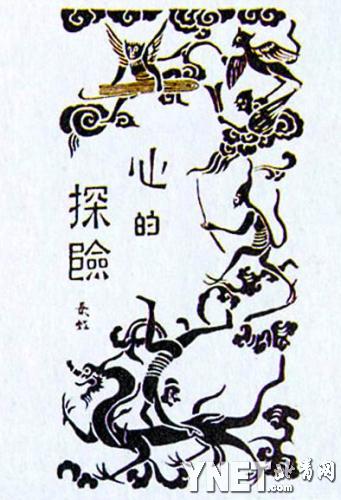 心的
探險
長虹
YNET.com
北青网